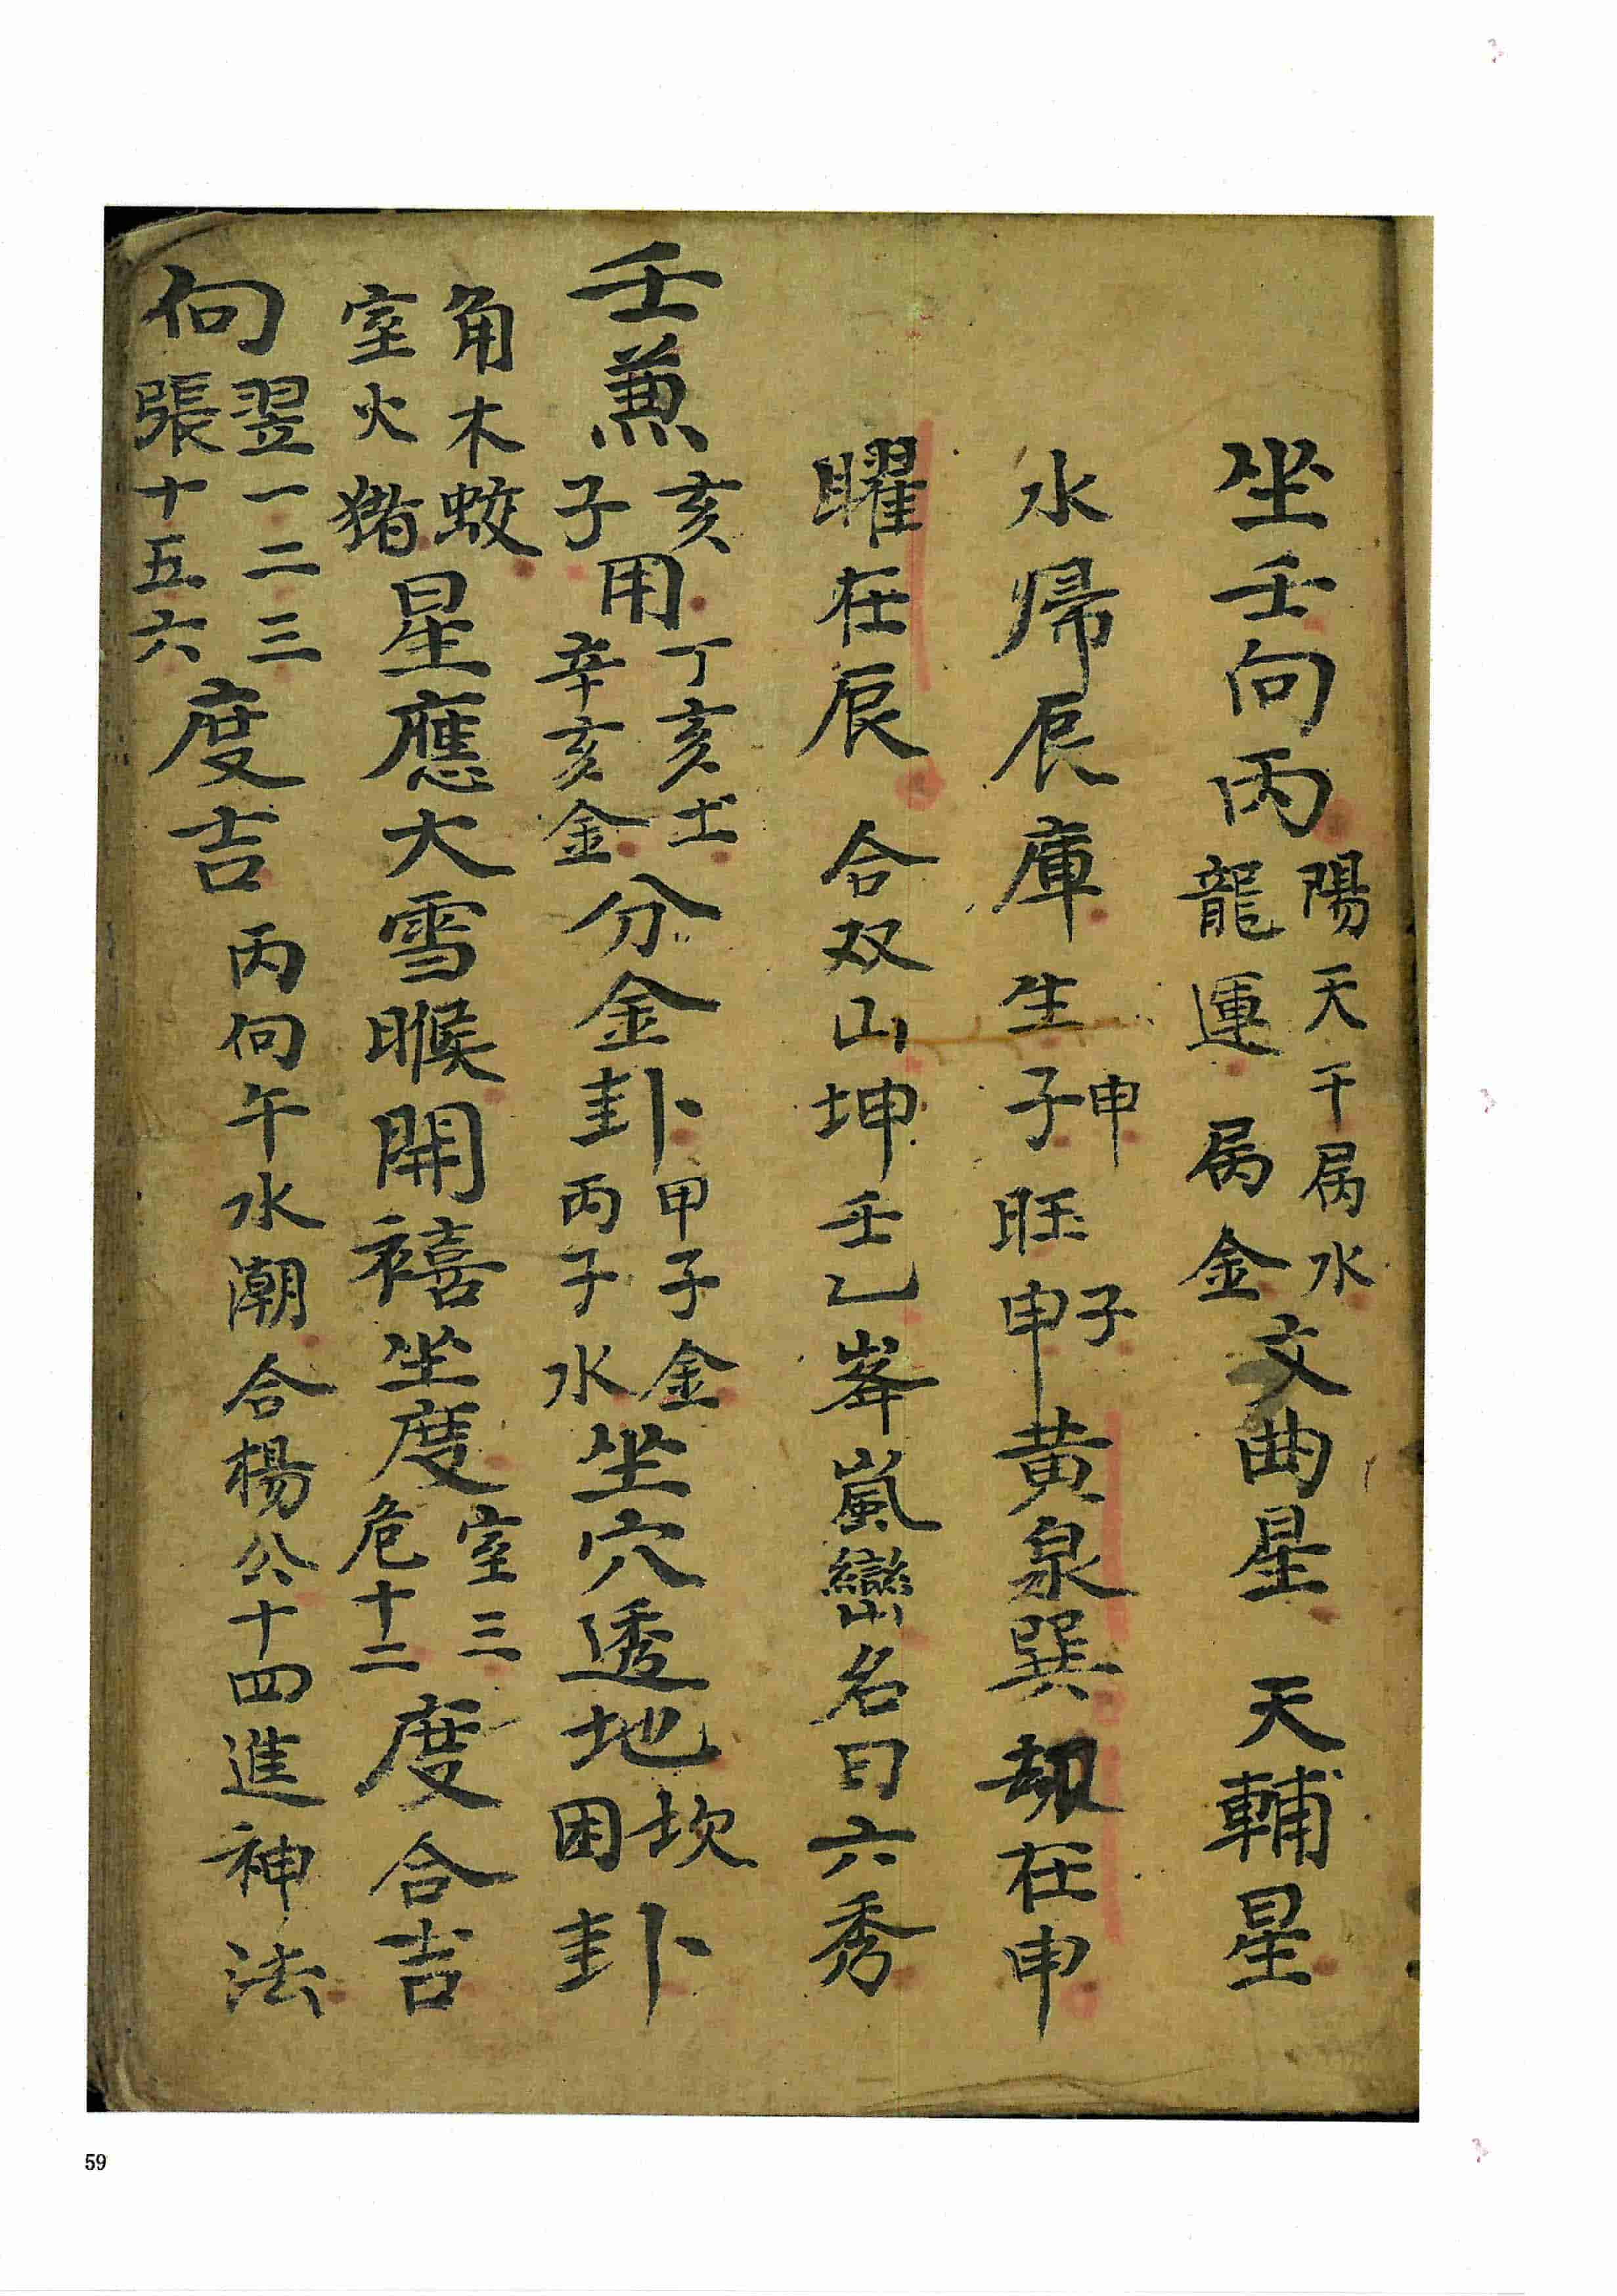 坐壬向丙陽天干属水龍運属金文曲星 天輔星
水帰辰庫生申子旺子申黄泉巽劫在申
曜在辰 合双山坤壬乙峯嵐巒名曰六秀
壬兼亥子用丁亥土辛亥金分金卦甲子金丙子水坐穴透地坎困卦
角木蛟室火猪星應大雪睺開禧坐度室三危十二度合吉
向翌一二三張十五六度吉 丙向午水潮合楊公十四進神法
59